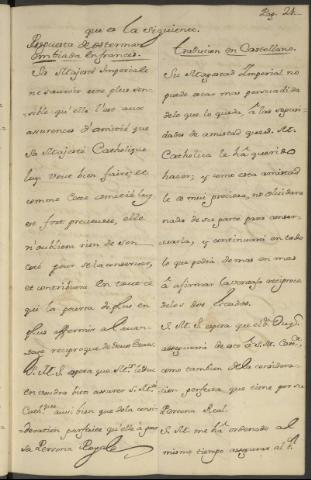 Pag. 24.
que es la siguiente.
Respuesta de Osterman
Emitiada En frances.
Sa Majesté Imperiale
ne sauroit etre plus sen-
sible qu'elle l'est aux
assurances d'amitié que
Sa Majesté Catholique
luy veut bien faire, et
comme cette amitié luy
est fort precieuse, elle
n'oubliera rien de son
coté pour se la conserver,
et contribuera en tout ce
qui la pourra de plus en
plus affermir al'avan-
tage reciproque de deux Cours.
S. M. I. espera que Mr. le Duc
en voudra bien assurer S. M.
Cathque aussi bien que de la consi-
deration parfaite qu'elle à pour
sa Personne Royale
traducion en Castellano.
Su Magestad Imperial no
puede estar mas persuadida
delo que lo queda, à las seguri-
dades de amistad que S. M.
Catholica le ha querido
hacer; y como esta amistad
le es mui preciosa, no olvidara
nada de su parte para conser-
varla, y continuará en todo
lo que podia de mas en mas
à afirmar la ventaja reciproca
de los dos Estados.
S. M. I. espera que el Sr. Duq.
assegurará de esto à S. M. Cca.
como tambien de la considera-
cion perfecta, que tiene por su
Persona Real.
S. M. me ha ordenado al
mismo tiempo assegurar al Sr.